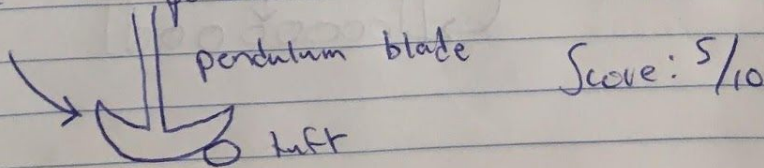 pendulum blade
Score: 5/10
tuft